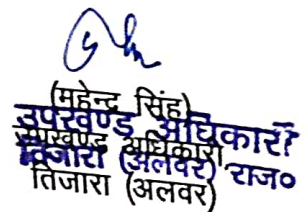 (महेन्द्र सिंह)
उपखण्ड अधिकारी
उपखण्ड अधिकारी
तिजारा (अलवर) राज०
तिजारा (अलवर)